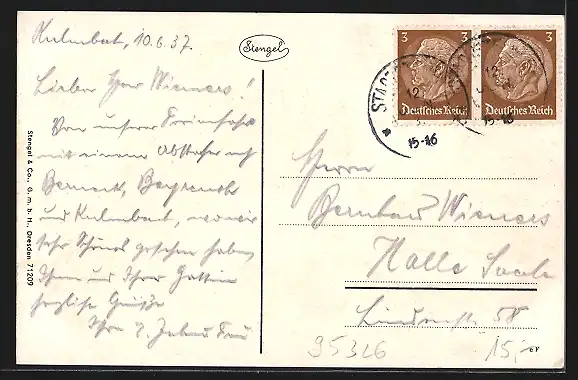 Kulmbach, 10.6.37.
Lieber Herr Wiemers!
Von unserer Ferienfahrt
mit einem Abstecher nach
Berneck, Bayreuth
und Kulmbach, wo wir
sehr Schönes gesehen haben,
Ihnen und Ihrer Gattin
herzliche Grüße
Ihr
Stengel
Stengel & Co., G. m. b. H., Dresden 71209
3
3
Deutsches Reich
Deutsches Reich
15-16
15-16
Herrn
Bernhard Wiemers
Halle Saale
Lindenstr. 58
95326
15,-